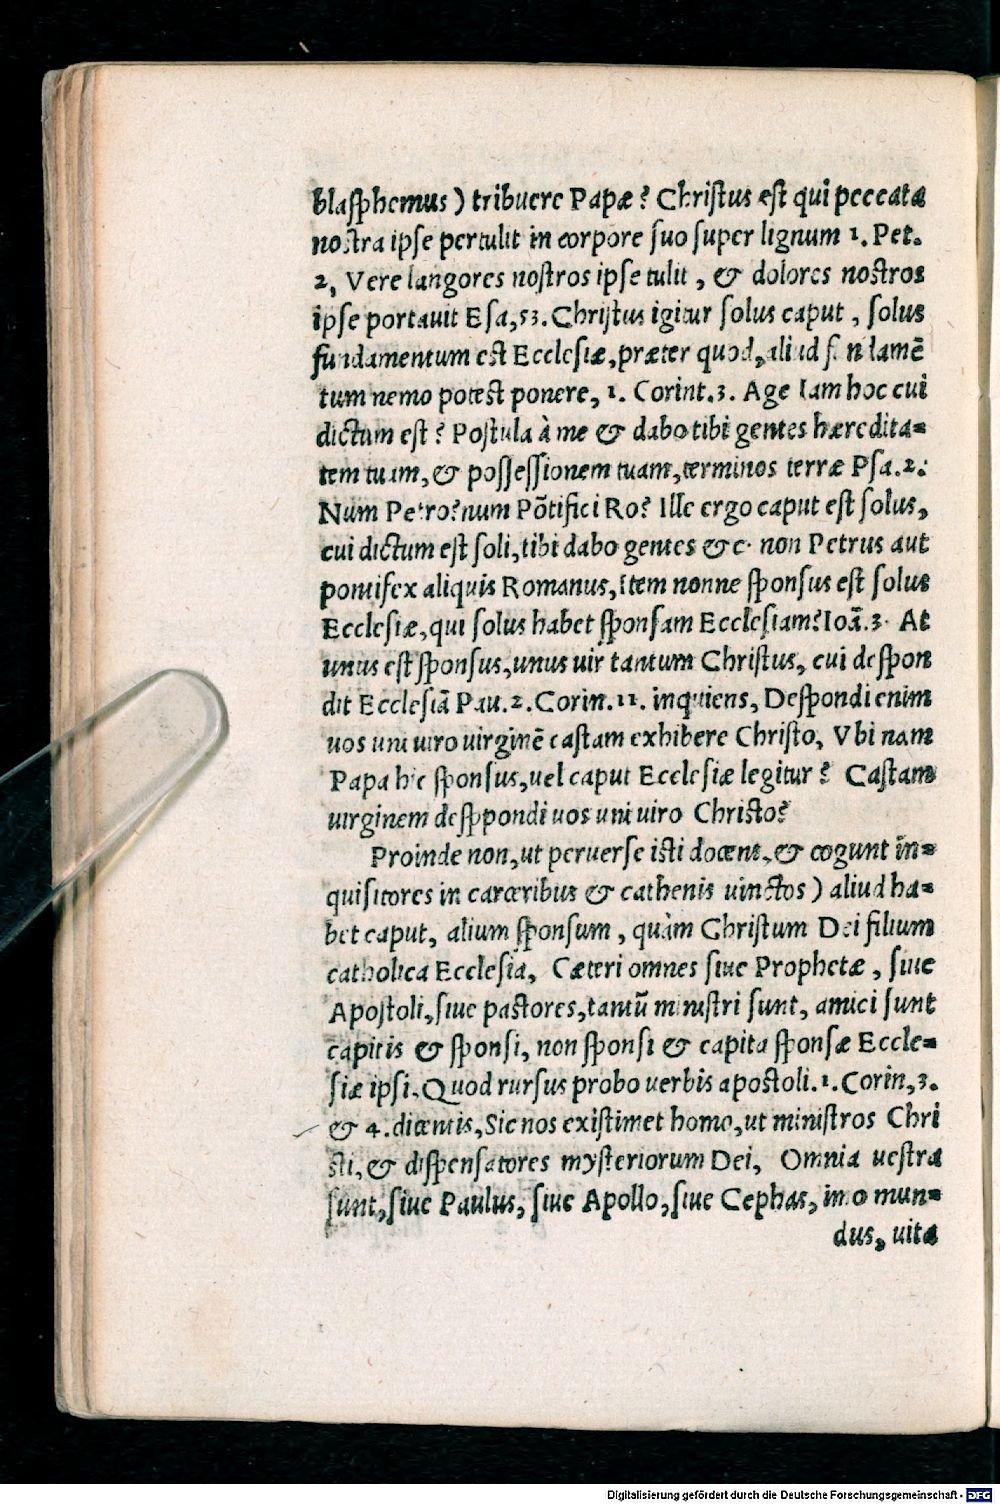 blasphemus) tribuere Papæ? Christus est qui peccata
nostra ipse pertulit in corpore suo super lignum 1. Pet.
2, Vere langores nostros ipse tulit, & dolores nostros
ipse portauit Esa, 53. Christus igitur solus caput, solus
fundamentum est Ecclesiæ, præter quod, aliud fundamē
tum nemo potest ponere, 1. Corint. 3. Age Iam hoc cui
dictum est? Postula à me & dabo tibi gentes hæredita=
tem tuam, & possessionem tuam, terminos terræ Psa. 2.
Num Petro? num Pōtifici Ro? Ille ergo caput est solus,
cui dictum est soli, tibi dabo gentes &c. non Petrus aut
pontifex aliquis Romanus, Item nonne sponsus est solus
Ecclesiæ, qui solus habet sponsam Ecclesiam? Ioā. 3. At
unus est sponsus, unus uir tantum Christus, cui despon
dit Ecclesiā Pau. 2. Corin. 11. inquiens, Despondi enim
uos uni uiro uirginē castam exhibere Christo, Vbi nam
Papa hic sponsus, uel caput Ecclesiæ legitur? Castam
uirginem desppondi uos uni uiro Christo?
Proinde non, ut peruerse isti docent, & cogunt in=
quisitores in carceribus & cathenis uinctos) aliud ha=
bet caput, alium sponsum, quàm Christum Dei filium
catholica Ecclesia, Cæteri omnes siue Prophetæ, siue
Apostoli, siue pastores, tantū ministri sunt, amici sunt
capitis & sponsi, non sponsi & capita sponsæ Eccle=
siæ ipsi. Quod rursus probo uerbis apostoli. 1. Corin, 3.
& 4. dicentis, Sic nos existimet homo, ut ministros Chri
sti, & dispensatores mysteriorum Dei, Omnia uestra
sunt, siue Paulus, siue Apollo, siue Cephas, imo mun=
dus, uita
Digitalisierung gefördert durch die Deutsche Forschungsgemeinschaft - DFG